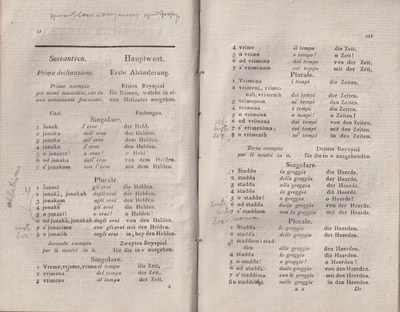 Sustantivo. Hauptwort.
Prima declinazione. Erste Abänderung.
Primo esempio Erstes Beyspiel
per nomi mascolini, che in für Nennw. welche in ei-
una consonante finiscono. nen Mitlauter ausgehen.
Casi. Endungen.
Singolare.
1 Junak l'eroe der Held.
2 junaka dell' eroe des Helden.
3 junaku all' eroe dem Helden.
4 junaka l'eroe den Helden.
5 o junace! o eroe! o Held!
6 od junaka dall' eroe von dem Helden.
7 s' junakom con l'eroe mit dem Helden.
Plurale.
1 Junaci gli eroi die Helden.
2 junaka, junakah degli eroi der Helden.
3 junakom agli eroi den Helden.
4 junake gli eroi die Helden.
5 o junaci! o eroi! o Helden!
6 od junaka, junakah dagli eroi von den Helden.
7 s' junacima con gli eroi mit den Helden.
8 u junacih negli eroi in, bey den Helden.
Secondo esempio Zweytes Beyspiel
per li neutri in e. für die in e ausgehenden.
Singolare.
1 Vrime, vrjeme, vreme il tempo die Zeit,
2 vrimena del tempo der Zeit,
3 vrimenu al tempo der Zeit,
4 vrime il tempo die Zeit,
5 o vrime! o tempo! o Zeit!
6 od vrimena dal tempo von der Zeit.
7 s' vrimenom col tempo mit der Zeit.
Plurale.
1 Vrimena i tempi die Zeiten.
2 vrimenà, vrimen-
nah, vrimenah dei tempi der Zeiten.
3 vrimenom ai tempi den Zeiten.
4 vrimena i tempi die Zeiten.
5 o vrimena! o tempi! o Zeiten!
6 od vrimena dai tempi von den Zeiten.
7 s' vrimenima coi tempi mit den Zeiten.
8 u vrimenih nei tempi in den Zeiten.
Terzo esempio Drittes Beyspiel
per li neutri in o. für die in o ausgehenden.
Singolare.
1 Staddo la greggia die Heerde.
2 stadda della greggia der Heerde.
3 staddu alla greggia der Heerde.
4 staddo la greggia die Heerde.
5 o staddo! o greggia! o Heerde!
6 od stadda dalla greggia von der Heerde.
7 s' staddom con la greggia mit der Heerde.
Plurale.
1 Stadda le greggie die Heerden.
2 staddà delle greggie der Heerden.
3 staddom i stad-
dim alle greggie den Heerden.
4 stadda le greggie die Heerden.
5 o stadda! o greggie! o Heerden!
6 od stadda dalle greggie von den Heerden.
7 s' staddima con le greggie mit den Heerden.
8 u staddih nelle greggie in den Heerden.
De